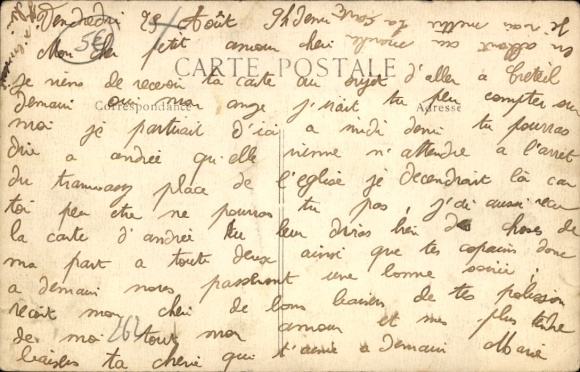 Vendredi 25 Août 9h demi
Mon cher petit amour cheri
CARTE POSTALE
je viens de recevoir ta carte au sujet d'aller a Creteil
Correspondance
Adresse
demain oui mon ange j'irait tu peu compter sur
moi je partirait d'ici a midi demi tu pourras
dire a andrée qu'elle vienne m'attendre a l'arret
du tramway place de l'eglise je decendrait là car
toi peu etre ne pourras tu pas, j'ai aussi recu
la carte d'andrée tu leur diras bien de choses de
ma part a toute deux ainsi que tes copains donc
a demain nous passeront une bonne soirée,
recoit mon cheri de bons baisers de tes
de moi tout mon amour et mes plus tendre
baisers ta cherie qui t'aime a demain Marie
je vai mettre la carte
en allant au
5€
262